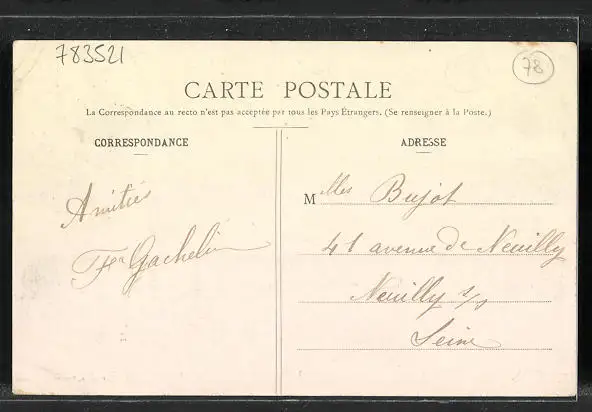 783521
78
CARTE POSTALE
La Correspondance au recto n'est pas acceptée par tous les Pays Étrangers. (Se renseigner à la Poste.)
CORRESPONDANCE
Amitiés
Gachelin
ADRESSE
Mlles Bujot
41 avenue de Neuilly
Neuilly s/s
Seine